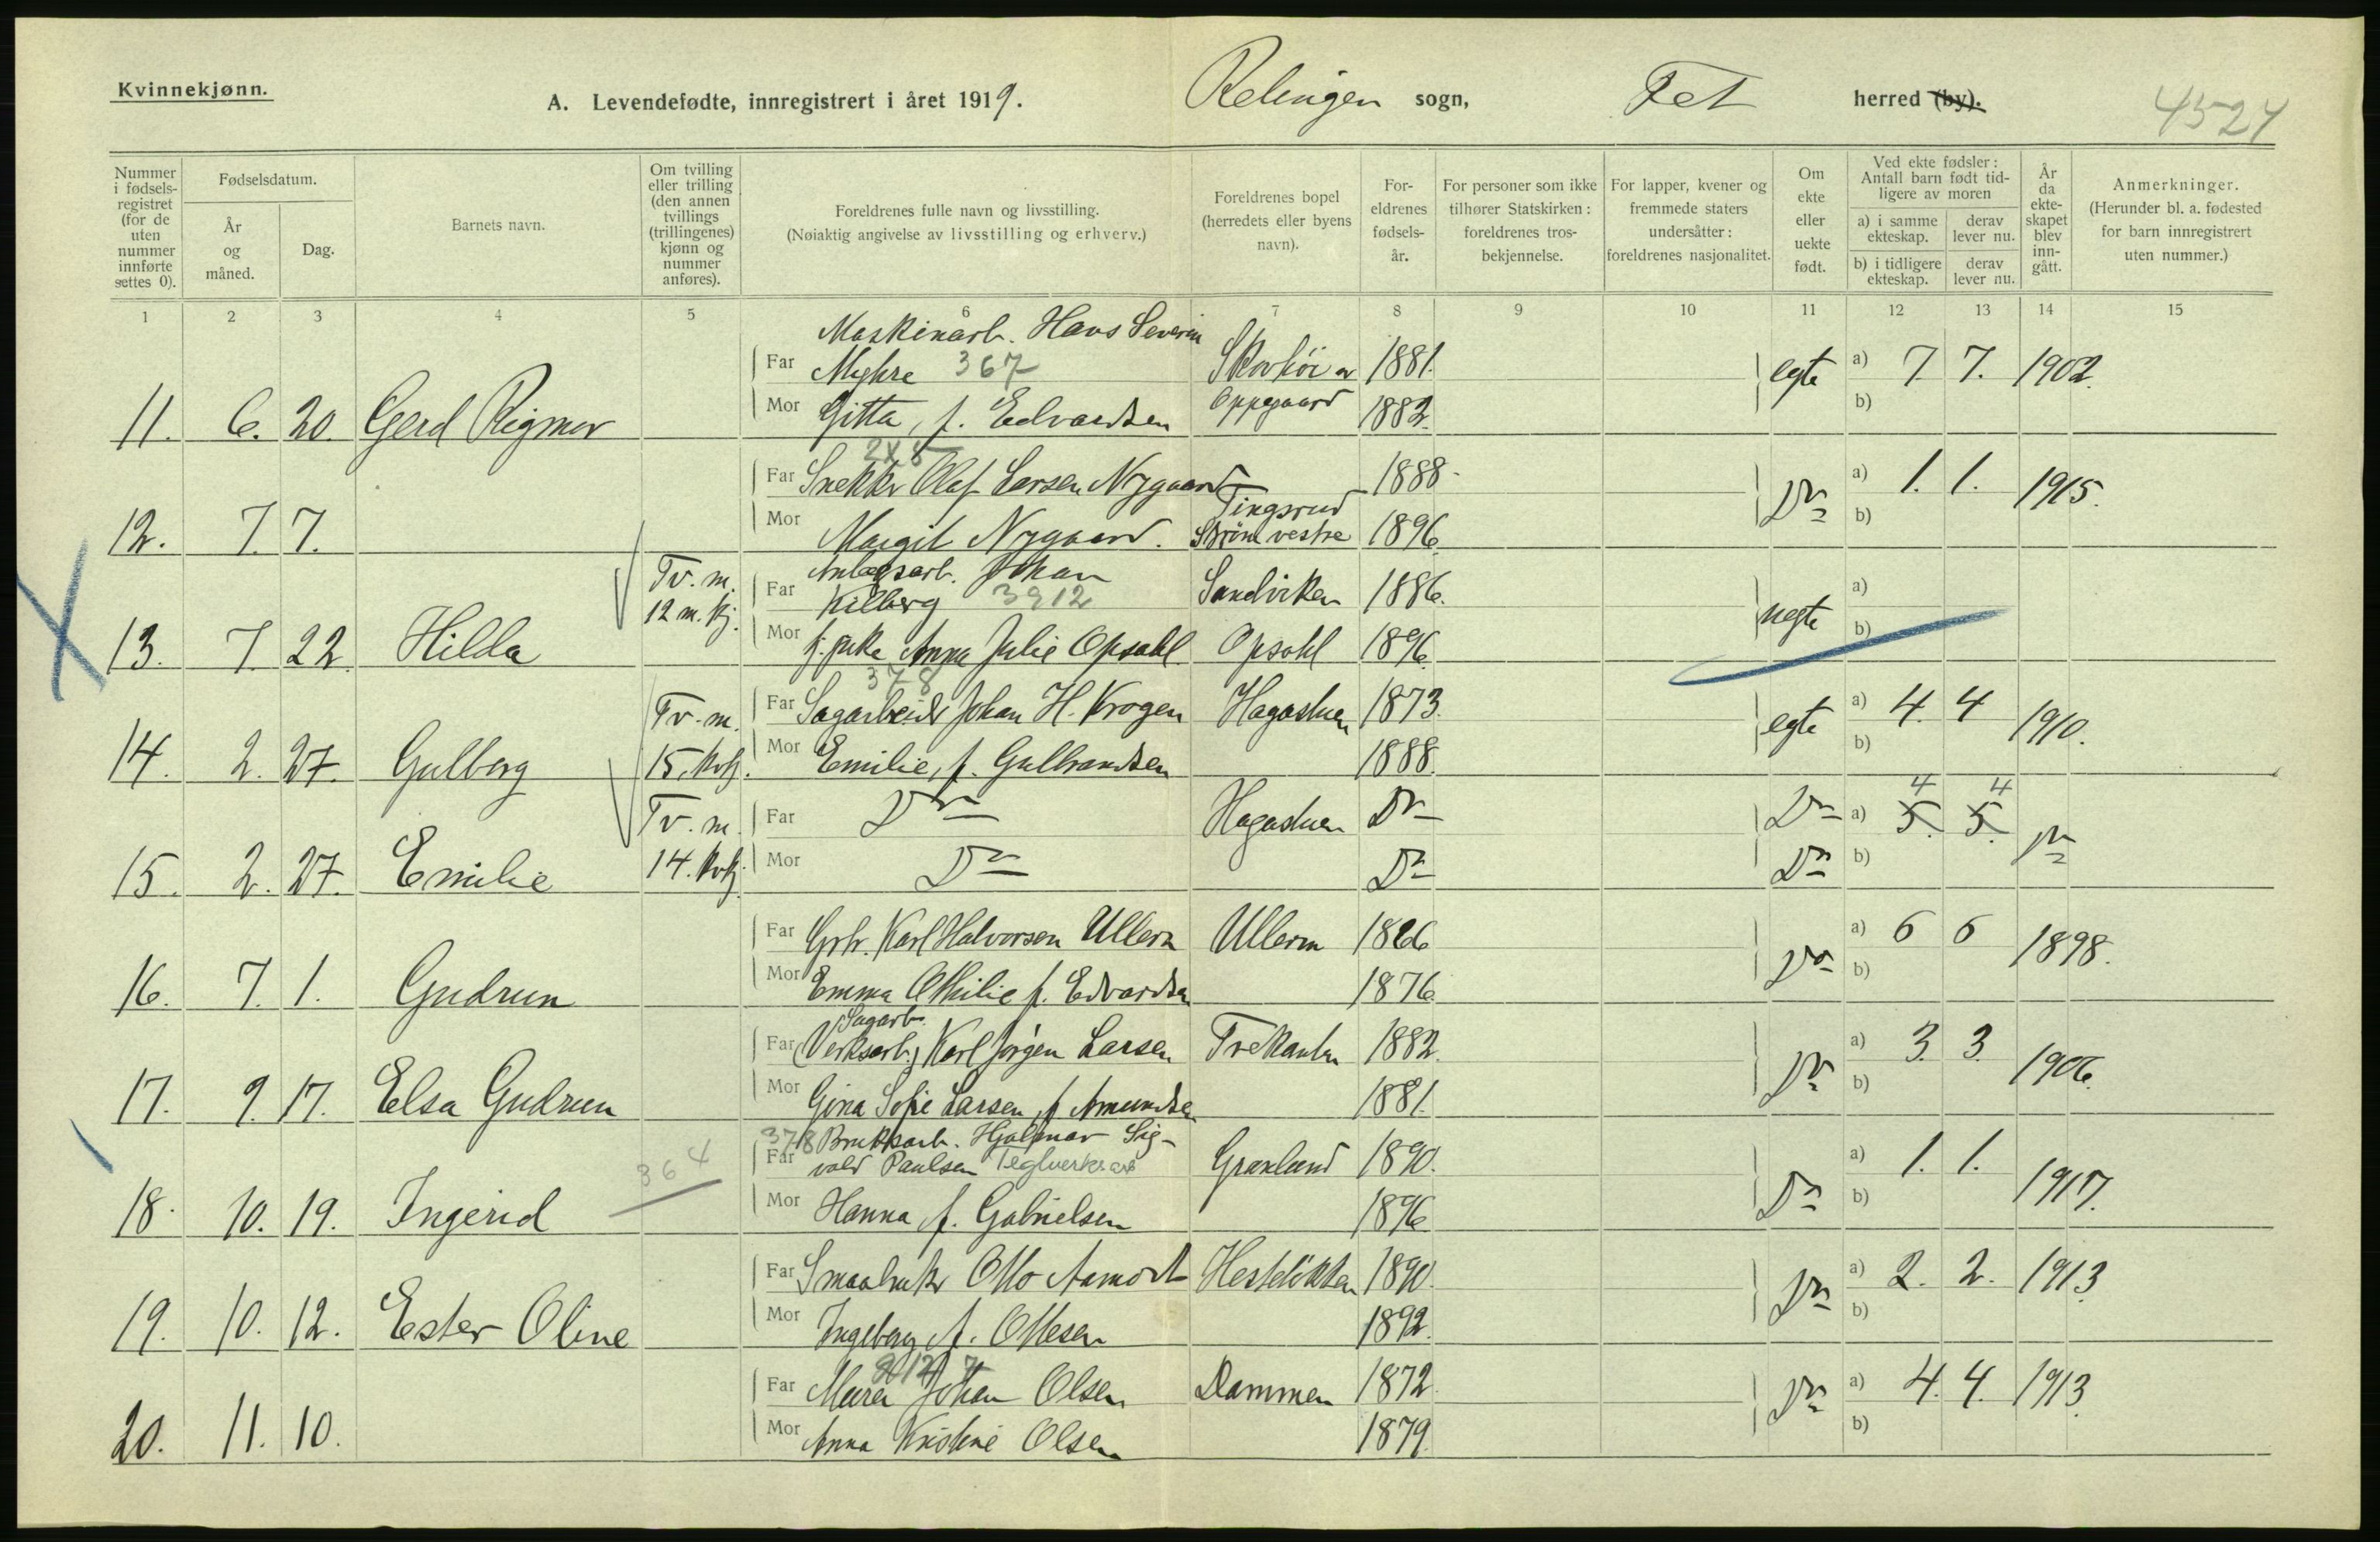 Kvinnekjønn.
A. Levendefødte, innregistrert i året 1919.
Relingen sogn,
Fet herred (by).
4524
Nummer i fødsels-registret (for de uten nummer innførte settes 0).
Fødselsdatum.
År og måned.
Dag.
Barnets navn.
Om tvilling eller trilling (den annen tvillings (trillingenes) kjønn og nummer anføres).
Foreldrenes fulle navn og livsstilling.
(Nøiaktig angivelse av livsstilling og erhverv.)
Foreldrenes bopel (herredets eller byens navn).
For-eldrenes fødsels-år.
For personer som ikke tilhører Statskirken: foreldrenes tros-bekjennelse.
For lapper, kvener og fremmede staters undersåtter: foreldrenes nasjonalitet.
Om ekte eller uekte født.
Ved ekte fødsler: Antall barn født tid-ligere av moren
a) i samme ekteskap.
derav lever nu.
b) i tidligere ekteskap.
derav lever nu.
År da ekte-skapet blev inn-gått.
Anmerkninger.
(Herunder bl. a. fødested for barn innregistrert uten nummer.)
1 2 3 4 5 6 7 8 9 10 11 12 13 14 15
Maskinarb. Hans Severin
Far Myhre 367 1881. egte a) 7. 7. 1902.
11. 6. 20. Gerd Rigmor Mor Gitta, f. Edvardsen Oppegaard 1882. b)
Far Snekkr Olaf Larsen Nygaard 1888. Do a) 1. 1. 1915.
Tingsrud
12. 7. 7. Mor Margit Nygaard. Strøm vestre 1896. b)
Tv. m. Anlægsarb. Johan
12 m. kj. Far Kilberg 3912 Sandviken 1886. uegte a)
13. 7. 22. Hilda Mor f. pike Anna Julie Opsahl Opsahl 1896. b)
378
Tv. m. Far Sagarbeidr Johan H. Krogen Hagastuen 1873. egte a) 4. 4 1910.
14. 2. 27. Gulborg 15. kvkj. Mor Emilie, f. Gulbrandsen 1888. b)
4 4
Tv. m. Far Do Hagastuen Do Do a) 5. 5. Do
15. 2. 27. Emilie 14. kvkj. Mor Do Do Do b)
Far Grbr. Karl Halvorsen Ullern Ullern 1866 Do a) 6 6 1898.
16. 7. 1. Gudrun Mor Emma Othilie f. Edvardsen 1876 b)
Sagarb.
Far (Verksarb.) Karl Jørgen Larsen Trekanten 1882. Do a) 3. 3. 1906.
17. 9. 17. Elsa Gudrun Mor Gina Sofie Larsen, f. Amundsen 1881. b)
364 378 Bruksarb. Hjalmar Sig-
Far vald Paulsen Teglverksarb Grønlund 1890. Do a) 1. 1. 1917.
18. 10. 19. Ingerid Mor Hanna f. Gabrielsen 1896 b)
Far Smaabrukr Otto Aamodt Hesteløkken 1890. Do a) 2. 2. 1913.
19. 10. 12. Ester Oline Mor Ingeborg f. Ottesen 1892. b)
Far Murer Johan Olsen Dammen 1872. Do a) 4. 4. 1913.
20. 11. 10. Mor Anna Kristine Olsen 1879. b)